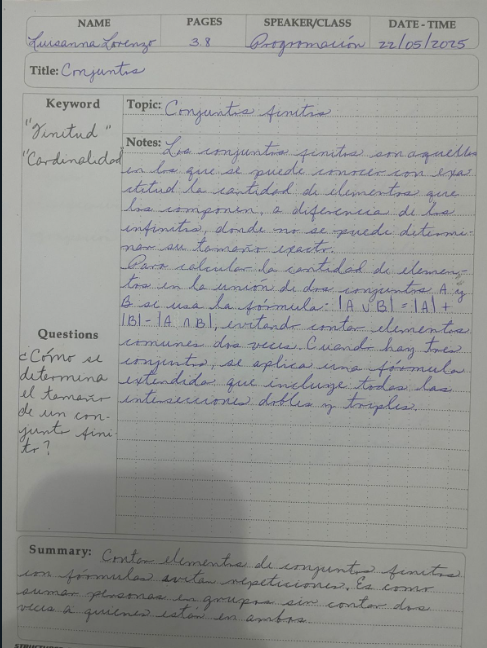 NAME PAGES SPEAKER/CLASS DATE - TIME
Luisanna Lorenzo 3.8 Programación 22/05/2025
Title: Conjuntos
Keyword
"Finitud"
"Cardinalidad"
Questions
¿Cómo se
determina
el tamaño
de un con-
junto fini-
to?
Topic: Conjuntos finitos
Notes: Los conjuntos finitos son aquellos
en los que se puede conocer con exa
ctitud la cantidad de elementos que
los componen, a diferencia de los
infinitos, donde no se puede determi-
nar su tamaño exacto.
Para calcular la cantidad de elemen-
tos en la unión de dos conjuntos A y
B se usa la fórmula: |A ∪ B| = |A| +
|B| - |A ∩ B|, evitando contar elementos
comunes dos veces. Cuando hay tres
conjuntos, se aplica una fórmula
extendida que incluye todas las
intersecciones dobles y triples.
Summary: Contar elementos de conjuntos finitos
con fórmulas evita repeticiones. Es como
sumar personas en grupos sin contar dos
veces a quienes están en ambos.